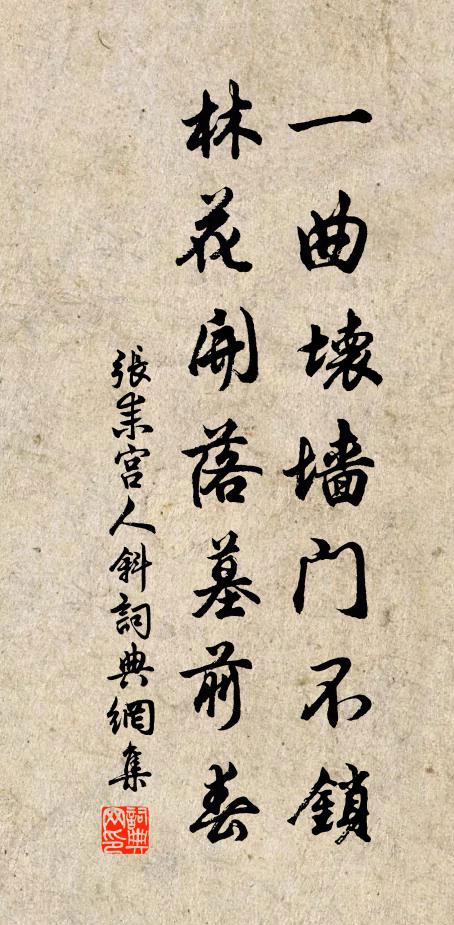 一曲壊墙门不鎖
林花開落墓前春
張耒宫人斜詞典網集
詞典网印